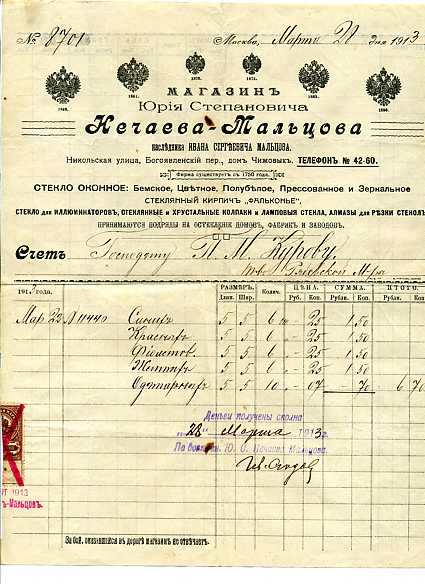 № 8701 Москва, Марта 28 дня 1913
1870. 1871.
1861. 1865.
1896.
МАГАЗИНЪ
Юрія Степановича
Нечаева-Мальцова
наслѣдника ИВАНА СЕРГѢЕВИЧА МАЛЬЦОВА.
Никольская улица, Богоявленскій пер., домъ Чижовыхъ. ТЕЛЕФОНЪ № 42-60.
Фирма существуетъ съ 1756 года.
СТЕКЛО ОКОННОЕ: Бемское, Цвѣтное, Полубѣлое, Прессованное и Зеркальное
СТЕКЛЯННЫЙ КИРПИЧЪ „ФАЛЬКОНЬЕ“.
СТЕКЛО для ИЛЛЮМИНАТОРОВЪ, СТЕКЛЯННЫЕ и ХРУСТАЛЬНЫЕ КОЛПАКИ и ЛАМПОВЫЯ СТЕКЛА, АЛМАЗЫ для РѢЗКИ СТЕКОЛЪ.
ПРИНИМАЮТСЯ ПОДРЯДЫ НА ОСТЕКЛЕНІЕ ДОМОВЪ, ФАБРИКЪ И ЗАВОДОВЪ.
Счетъ Господину П. М. Курову,
1913 года. РАЗМѢРЪ. Колич. ЦѢНА. СУММА. ИТОГО.
Длин. Шир. Руб. Коп. Рубли. Коп. Рубли. Коп.
Мар 22 11440 Синихъ 5 5 6 - 25 1 50
Красныхъ 5 5 6 - 25 1 50
5 5 6 - 25 1 50
Желтыхъ 5 5 6 - 25 1 50
5 5 10 - 07 - 70 6 70
Деньги получены сполна
„28“ Марта 1913 г.
По довѣр. Ю. С. Нечаева-Мальцова.
1913
-Мальцовъ.
За бой, оказавшійся въ дорогѣ магазинъ не отвѣчаетъ.